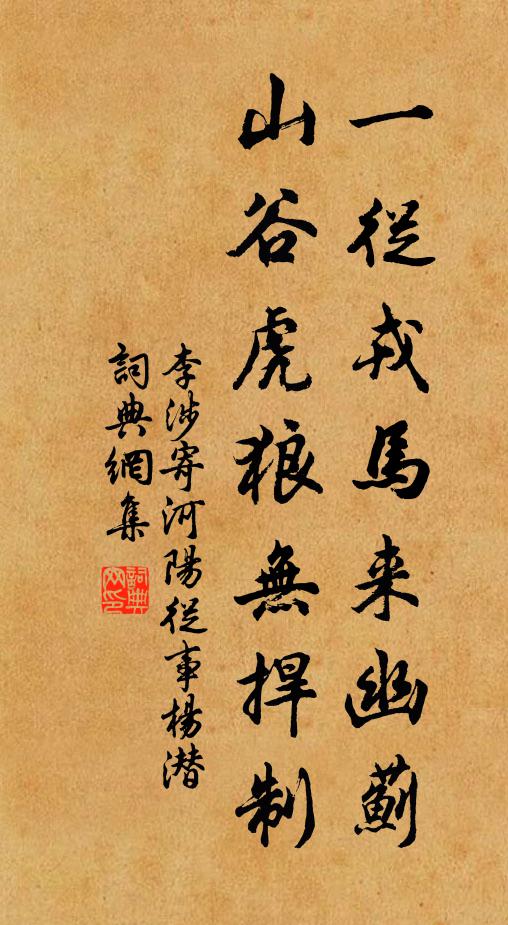 一從戎馬来幽薊
山谷虎狼無捍制
李涉寄河陽從事楊潜
詞典網集
詞典
网印